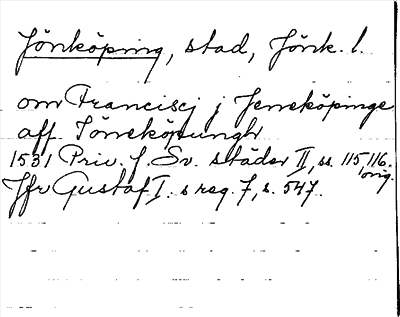 Jönköping, stad, Jönk. l.
om Franciscj j Jeneköpinge
aff Jöneköpungh
1531 Priv. f. Sv. städer II, ss. 115, 116.
orig.
Jfr Gustaf I:s reg. 7, s. 547.